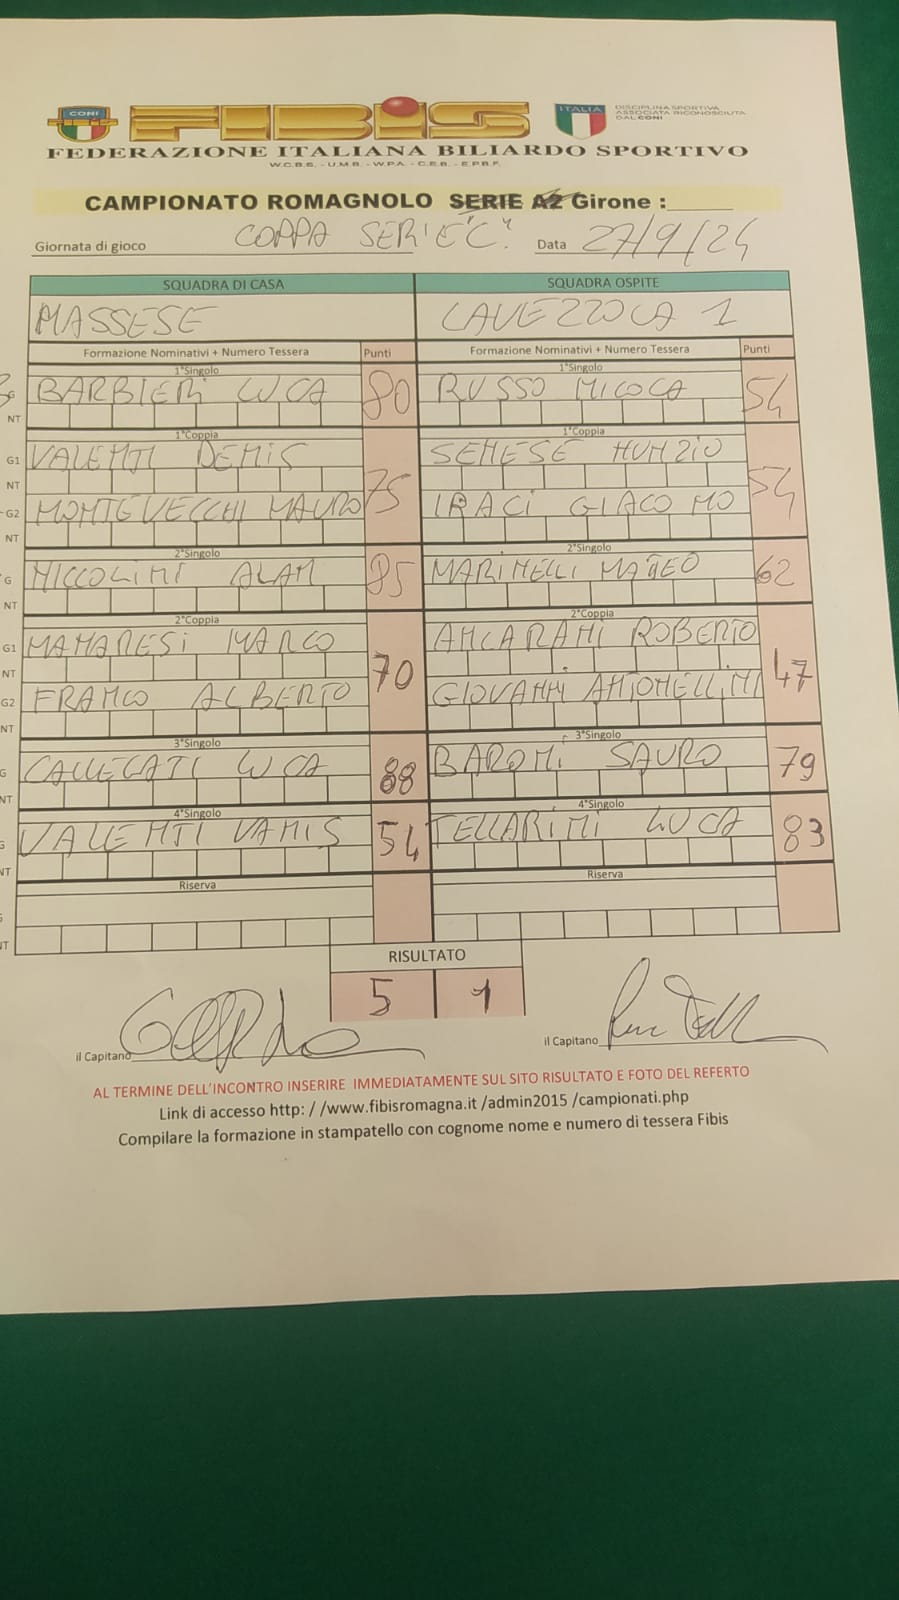 CONI
FIBIS
ITALIA
DISCIPLINA SPORTIVA
ASSOCIATA RICONOSCIUTA
DAL CONI
FEDERAZIONE ITALIANA BILIARDO SPORTIVO
W.C.B.S. - U.M.B. - W.P.A. - C.E.B. - E.P.B.F.
CAMPIONATO ROMAGNOLO SERIE A2 Girone :
Giornata di gioco COPPA SERIE "C" Data 27/9/24
SQUADRA DI CASA SQUADRA OSPITE
MASSESE LAVEZZOLA 1
Formazione Nominativi + Numero Tessera Punti Formazione Nominativi + Numero Tessera Punti
1°Singolo 1°Singolo
BARBIERI LUCA 80 RUSSO NICOLA 54
NT
1°Coppia 1°Coppia
G1 VALENTI DEMIS SENESE NUNZIO
NT 75 54
G2 MONTEVECCHI MAURO IRACI GIACOMO
NT
2°Singolo 2°Singolo
G NICCOLINI ALAN 85 MARINELLI MATTEO 62
NT
2°Coppia 2°Coppia
G1 MANARESI MARCO ANCARANI ROBERTO
NT 70 47
G2 FRANCO ALBERTO GIOVANNI ANTONELLINI
NT
3°Singolo 3°Singolo
G CALLEGATI LUCA 88 BARONI SAURO 79
NT
4°Singolo 4°Singolo
G VALENTI VANIS 54 TELLARINI LUCA 83
NT
Riserva Riserva
NT
RISULTATO
5 1
il Capitano il Capitano
AL TERMINE DELL'INCONTRO INSERIRE IMMEDIATAMENTE SUL SITO RISULTATO E FOTO DEL REFERTO
Link di accesso http: / /www.fibisromagna.it /admin2015 /campionati.php
Compilare la formazione in stampatello con cognome nome e numero di tessera Fibis